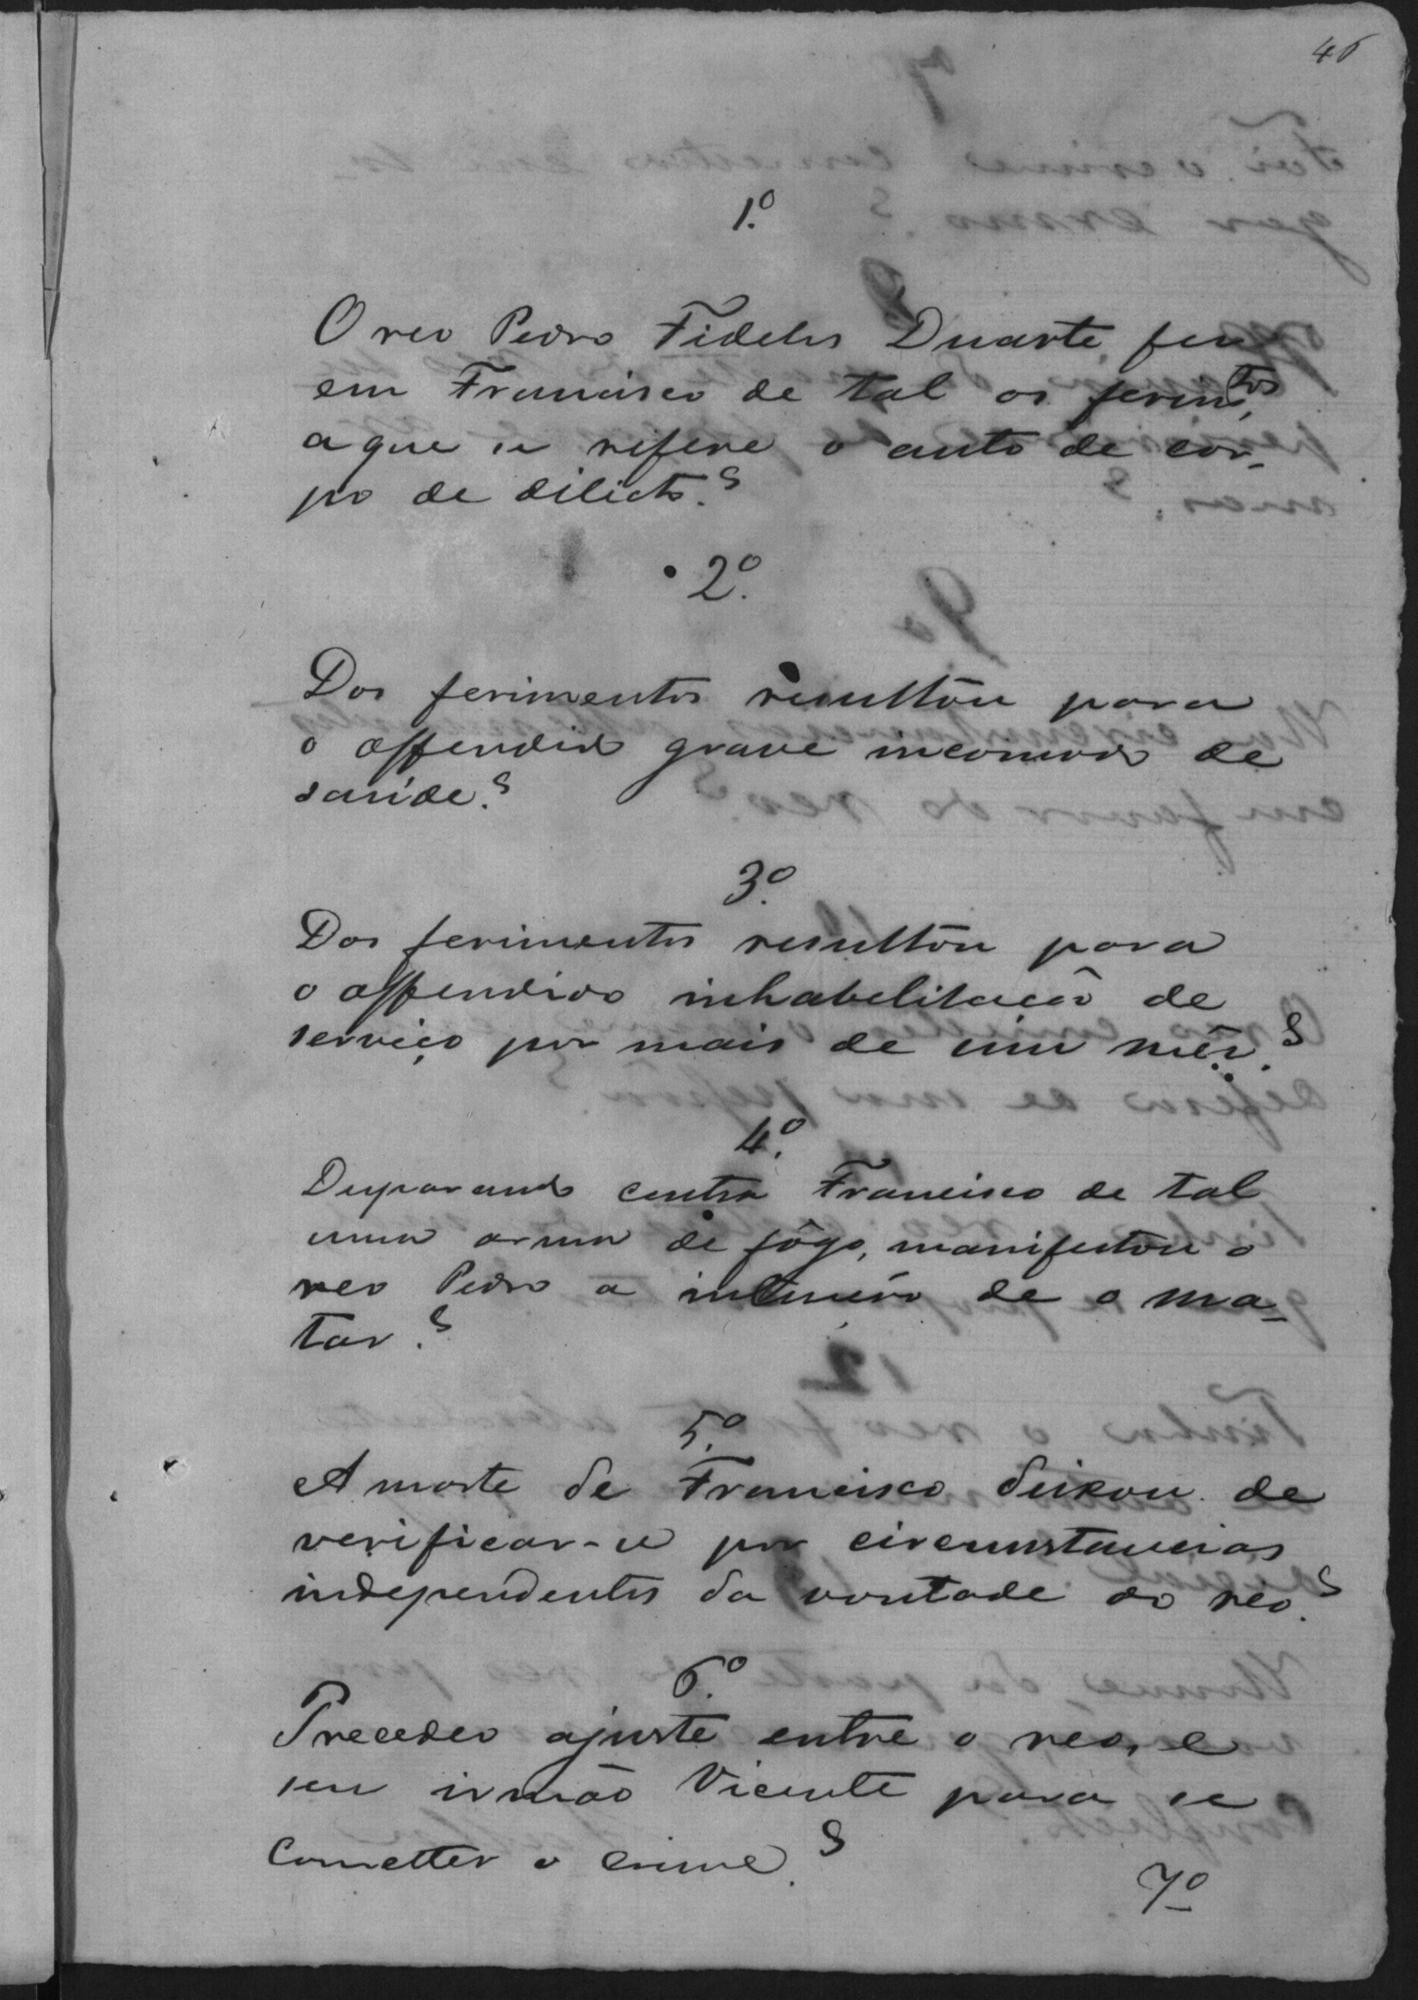 46
1º
O reo Pedro Fidelis Duarte fez
em Francisco de tal os ferimtos,
a que se refere o auto de cor-
po de dilicto?
2º
Dos ferimentos resultou para
o offendido grave incomodo de
saúde?
3º
Dos ferimentos resultou para
o offendido inhabelitação de
serviço por mais de um mês?
4º
Disparando contra Francisco de tal
uma arma de fôgo, manifestou o
reo Pedro a intenção de o ma-
tar?
5º
A morte de Francisco deixou de
verificar-se por circunstancias
independentes da vontade do reo?
6º
Precedeo ajuste entre o reo, e
seu irmão Vicente para se
cometter o crime?
7º